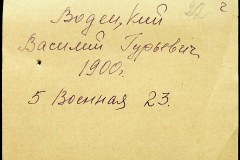 ч
Водецкий
Василий Гурьевич
1900г.
5 Военная 23.